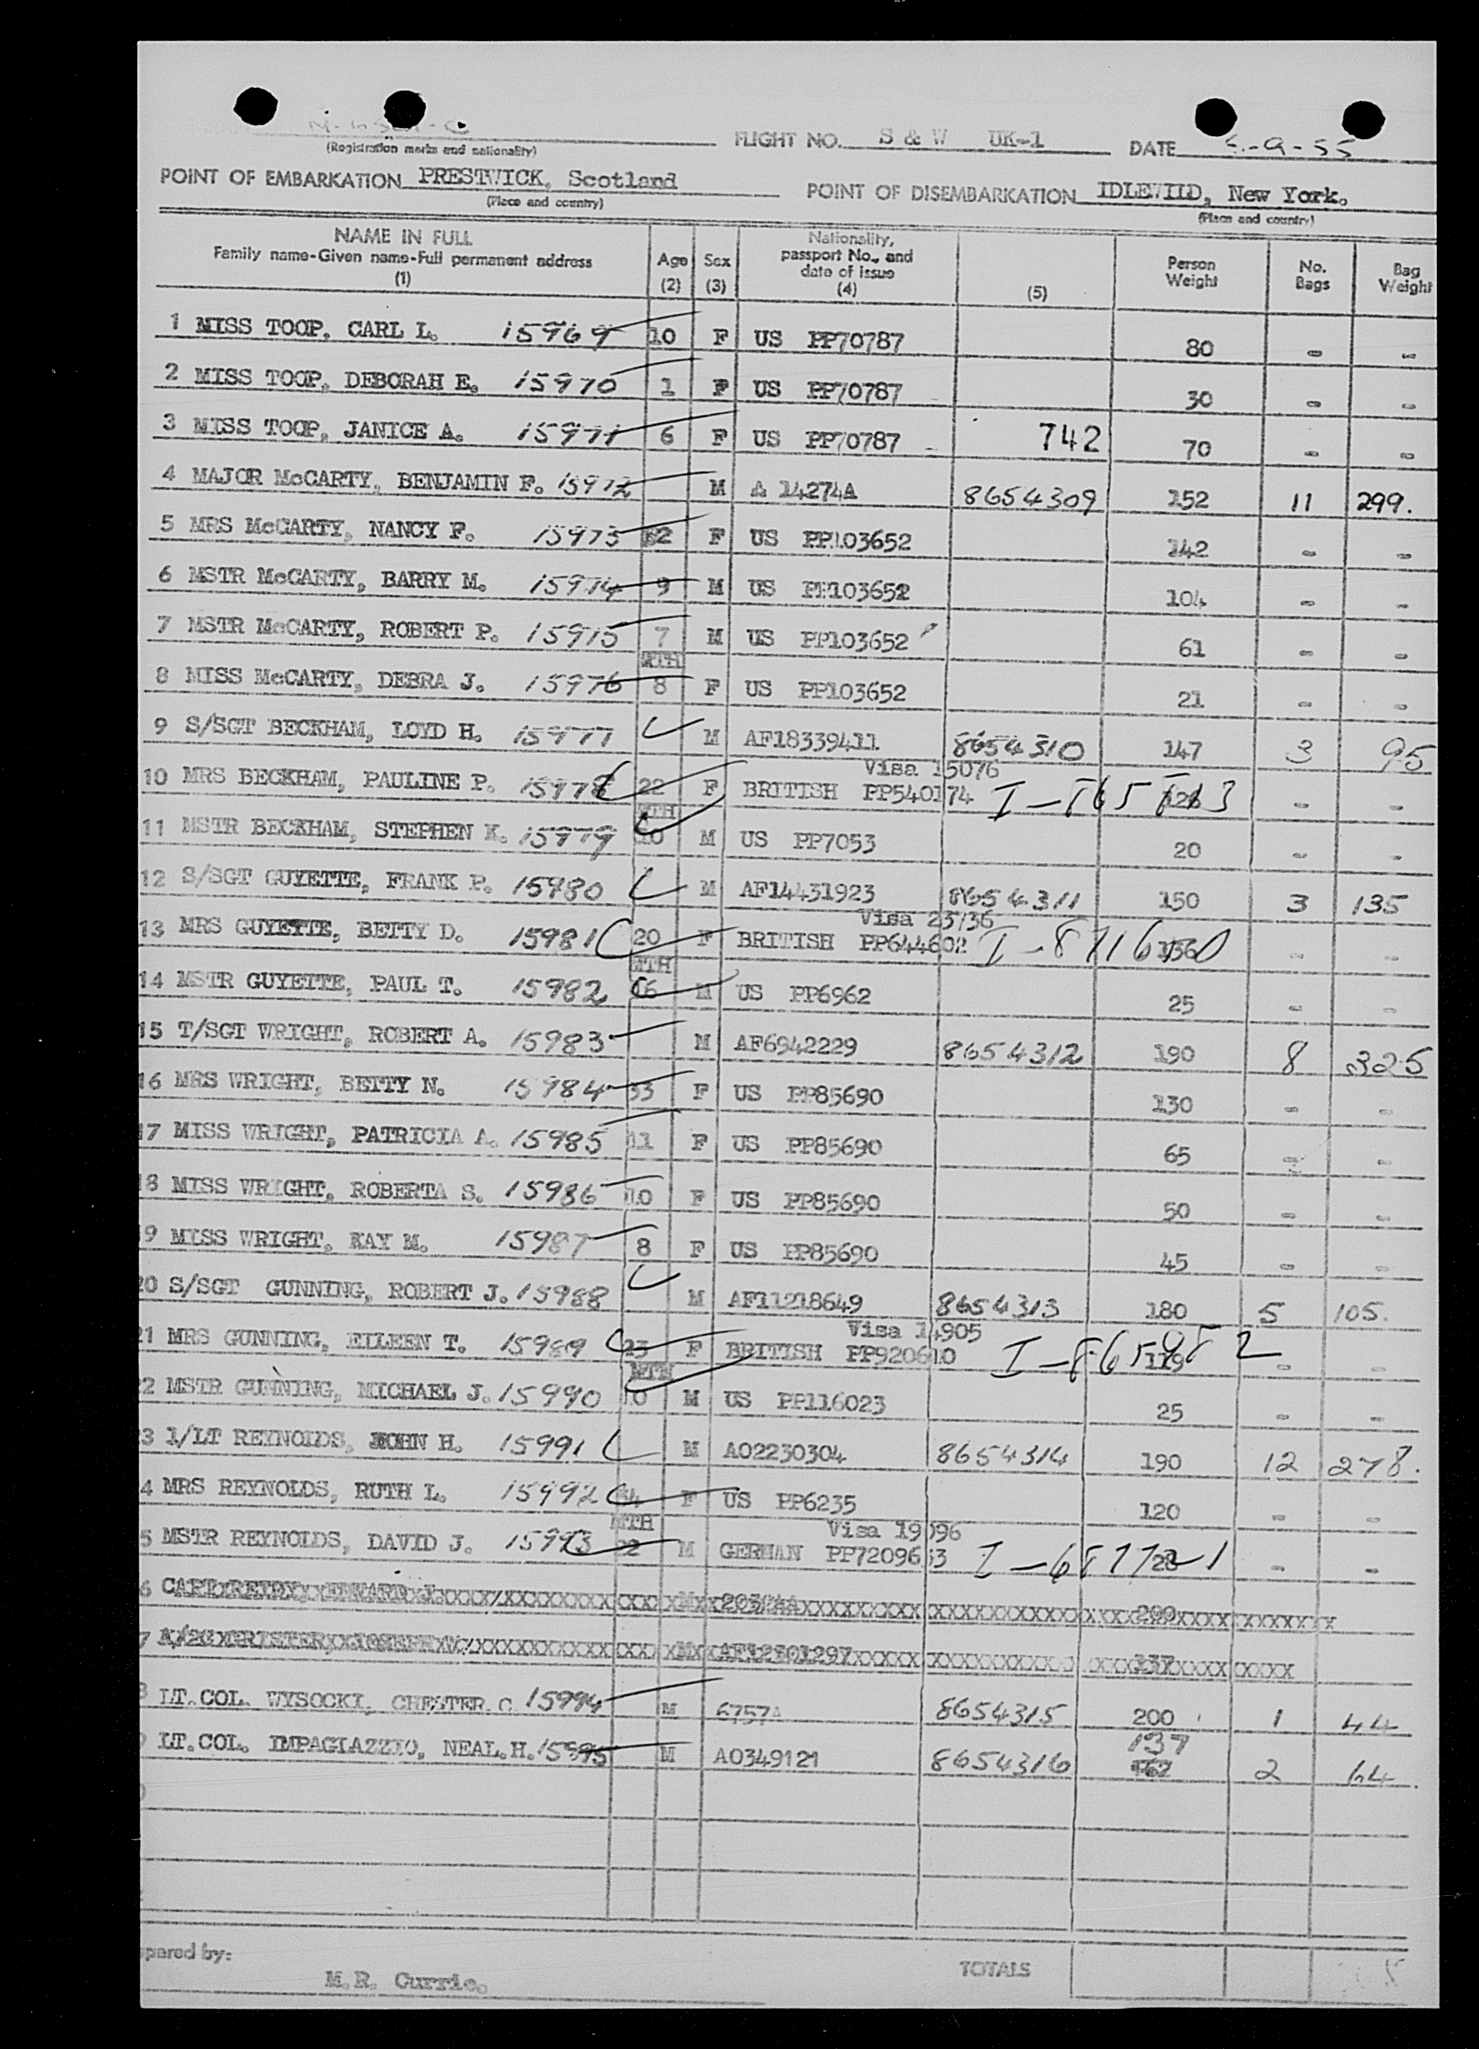 FLIGHT NO. S & W UK-1 DATE -9-55
(Registration marks and nationality)
POINT OF EMBARKATION PRESTWICK, Scotland POINT OF DISEMBARKATION IDLEWILD, New York.
(Place and country) (Place and country)
NAME IN FULL
Family name-Given name-Full permanent address
(1)
Age
(2)
Sex
(3)
Nationality,
passport No., and
date of issue
(4)
(5)
Person
Weight
No.
Bags
Bag
Weight
1 MISS TOOP, CARL L. 15969 10 F US PP70787 80 - -
2 MISS TOOP, DEBORAH E. 15970 1 F US PP70787 30 - -
3 MISS TOOP, JANICE A. 15971 6 F US PP70787 742 70 - -
4 MAJOR McCARTY, BENJAMIN F. 15972 M A 14274A 8654309 152 11 299.
5 MRS McCARTY, NANCY F. 15973 32 F US PP103652 142 - -
6 MSTR McCARTY, BARRY M. 15974 9 M US PP103652 104 - -
7 MSTR McCARTY, ROBERT P. 15975 7 M US PP103652 61 - -
MTH
8 MISS McCARTY, DEBRA J. 15976 8 F US PP103652 21 - -
9 S/SGT BECKHAM, LOYD H. 15977 M AF18339411 8654310 147 3 95
Visa 15076
10 MRS BECKHAM, PAULINE P. 15978 22 F BRITISH PP540174 - -
MTH
11 MSTR BECKHAM, STEPHEN K. 15979 10 M US PP7053 20 - -
12 S/SGT GUYETTE, FRANK P. 15980 M AF14431923 8654311 150 3 135
Visa 23736
13 MRS GUYETTE, BETTY D. 15981 20 F BRITISH PP644602 I-8716 - -
MTH
14 MSTR GUYETTE, PAUL T. 15982 6 M US PP6962 25 - -
15 T/SGT WRIGHT, ROBERT A. 15983 M AF6942229 8654312 190 8 325
16 MRS WRIGHT, BETTY N. 15984 33 F US PP85690 130 - -
17 MISS WRIGHT, PATRICIA A. 15985 11 F US PP85690 65 - -
18 MISS WRIGHT, ROBERTA S. 15986 10 F US PP85690 50 - -
19 MISS WRIGHT, KAY M. 15987 8 F US PP85690 45 - -
20 S/SGT GUNNING, ROBERT J. 15988 M AF11218649 8654313 180 5 105.
Visa 14905
21 MRS GUNNING, EILEEN T. 15989 23 F BRITISH PP920610 119 - -
MTH
22 MSTR GUNNING, MICHAEL J. 15990 10 M US PP116023 25 - -
3 1/LT REYNOLDS, JOHN H. 15991 M AO2230304 8654314 190 12 278.
4 MRS REYNOLDS, RUTH L. 15992 F US PP6235 120 - -
MTH Visa 19096
5 MSTR REYNOLDS, DAVID J. 15993 22 M GERMAN PP7209633 28 - -
6 CAPT EDWARD J. M 200
7 A/2C JOSEPH M AF12301297 137
LT.COL. WYSOCKI, CHESTER.C. 15994 M 6757A 8654315 200 1 44
LT.COL. IMPAGLAZZIO, NEAL.H. 15995 M AO349121 8654316 137 2 64.
pared by:
M.R. Currie.
TOTALS